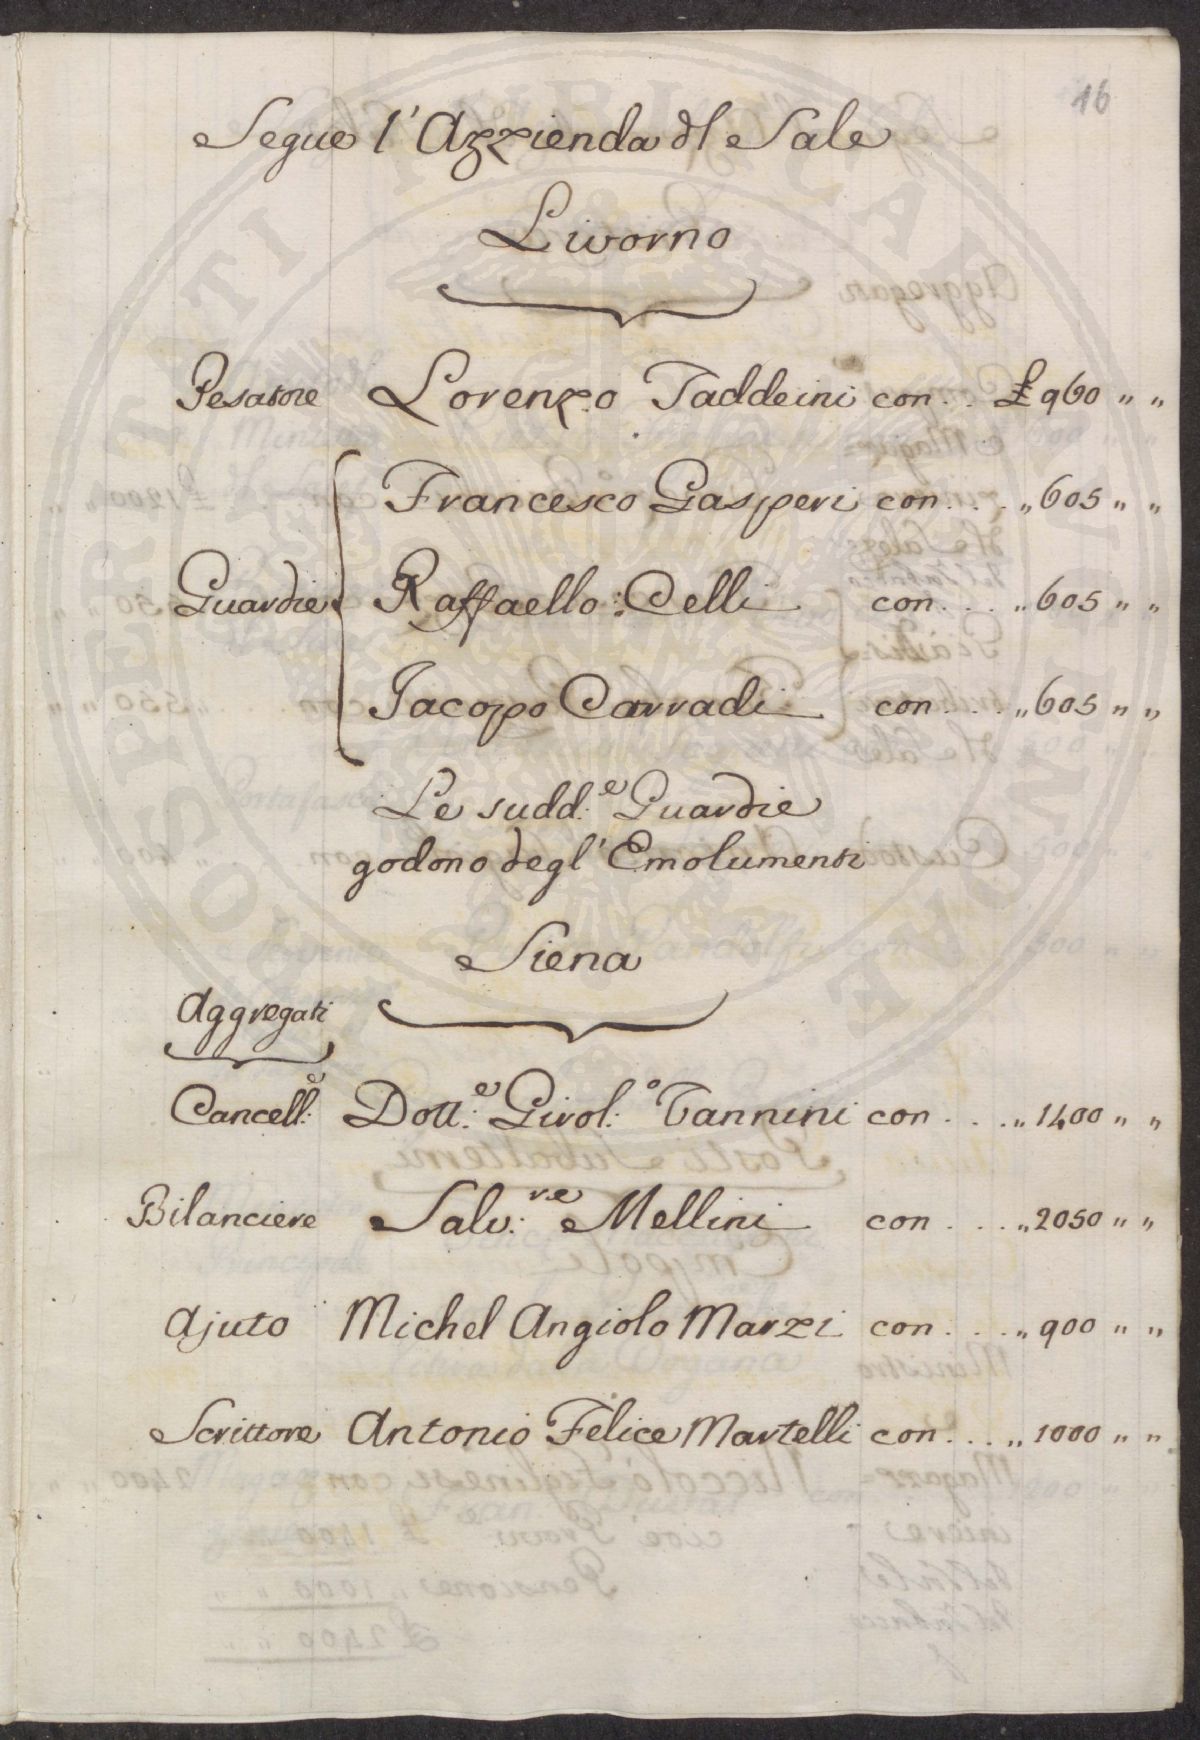 16
Segue l'Azzienda dl Sale
Livorno
Pesatore Lorenzo Taddeini con . . £ 960 " "
Francesco Gasperi con . . . " 605 " "
Guardie Raffaello Celli con . . . " 605 " "
Jacopo Carradi con . . . " 605 " "
Le sudd.e Guardie
godono degl' Emolumenti
Siena
Aggregati
Cancell.e Dott.e Girol.o Vannini con . . . " 1400 " "
Bilanciere Salv.re Mellini con . . . " 2050 " "
Ajuto Michel Angiolo Marzi con . . . " 900 " "
Scrittore Antonio Felice Martelli con . . . " 1000 " "